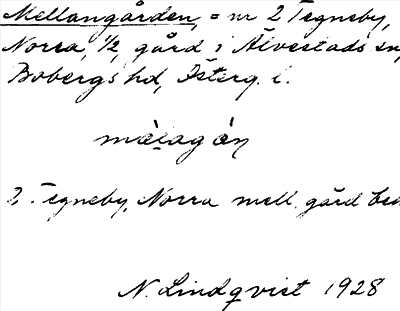 Mellangården, = nr 2 Tegneby,
Norra, 1/2 gård i Älvestads sn,
Bobergs hd, Österg. l.
2. Tegneby, Norra mell. gård
N. Lindqvist 1928